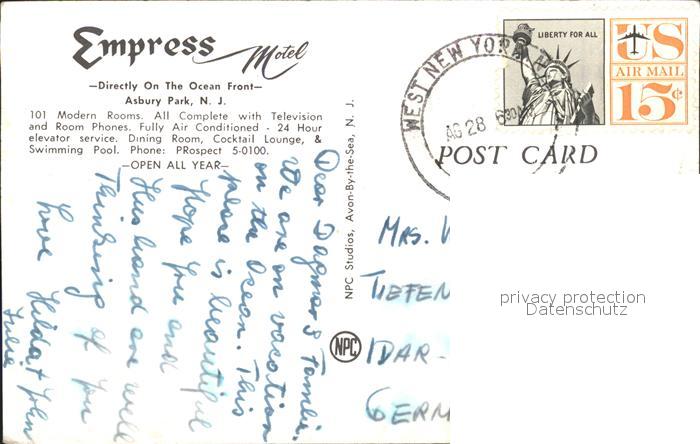 Empress Motel
—Directly On The Ocean Front—
Asbury Park, N. J.
101 Modern Rooms. All Complete with Television
and Room Phones. Fully Air Conditioned - 24 Hour
elevator service. Dining Room, Cocktail Lounge, &
Swimming Pool. Phone: PRospect 5-0100.
—OPEN ALL YEAR—
Dear Dagmar & Familie.
We are on vacation
on the Ocean. This
place is beautiful
Hope you and
Husband are well
Thinking of you
Love Hilda & John
Julie
NPC Studios, Avon-By-the-Sea, N. J.
NPC
WEST NEW YORK
AG 28
LIBERTY FOR ALL
US
AIR MAIL
15¢
POST CARD
MRS.
TIEFEN
IDAR-
GERM
privacy protection
Datenschutz